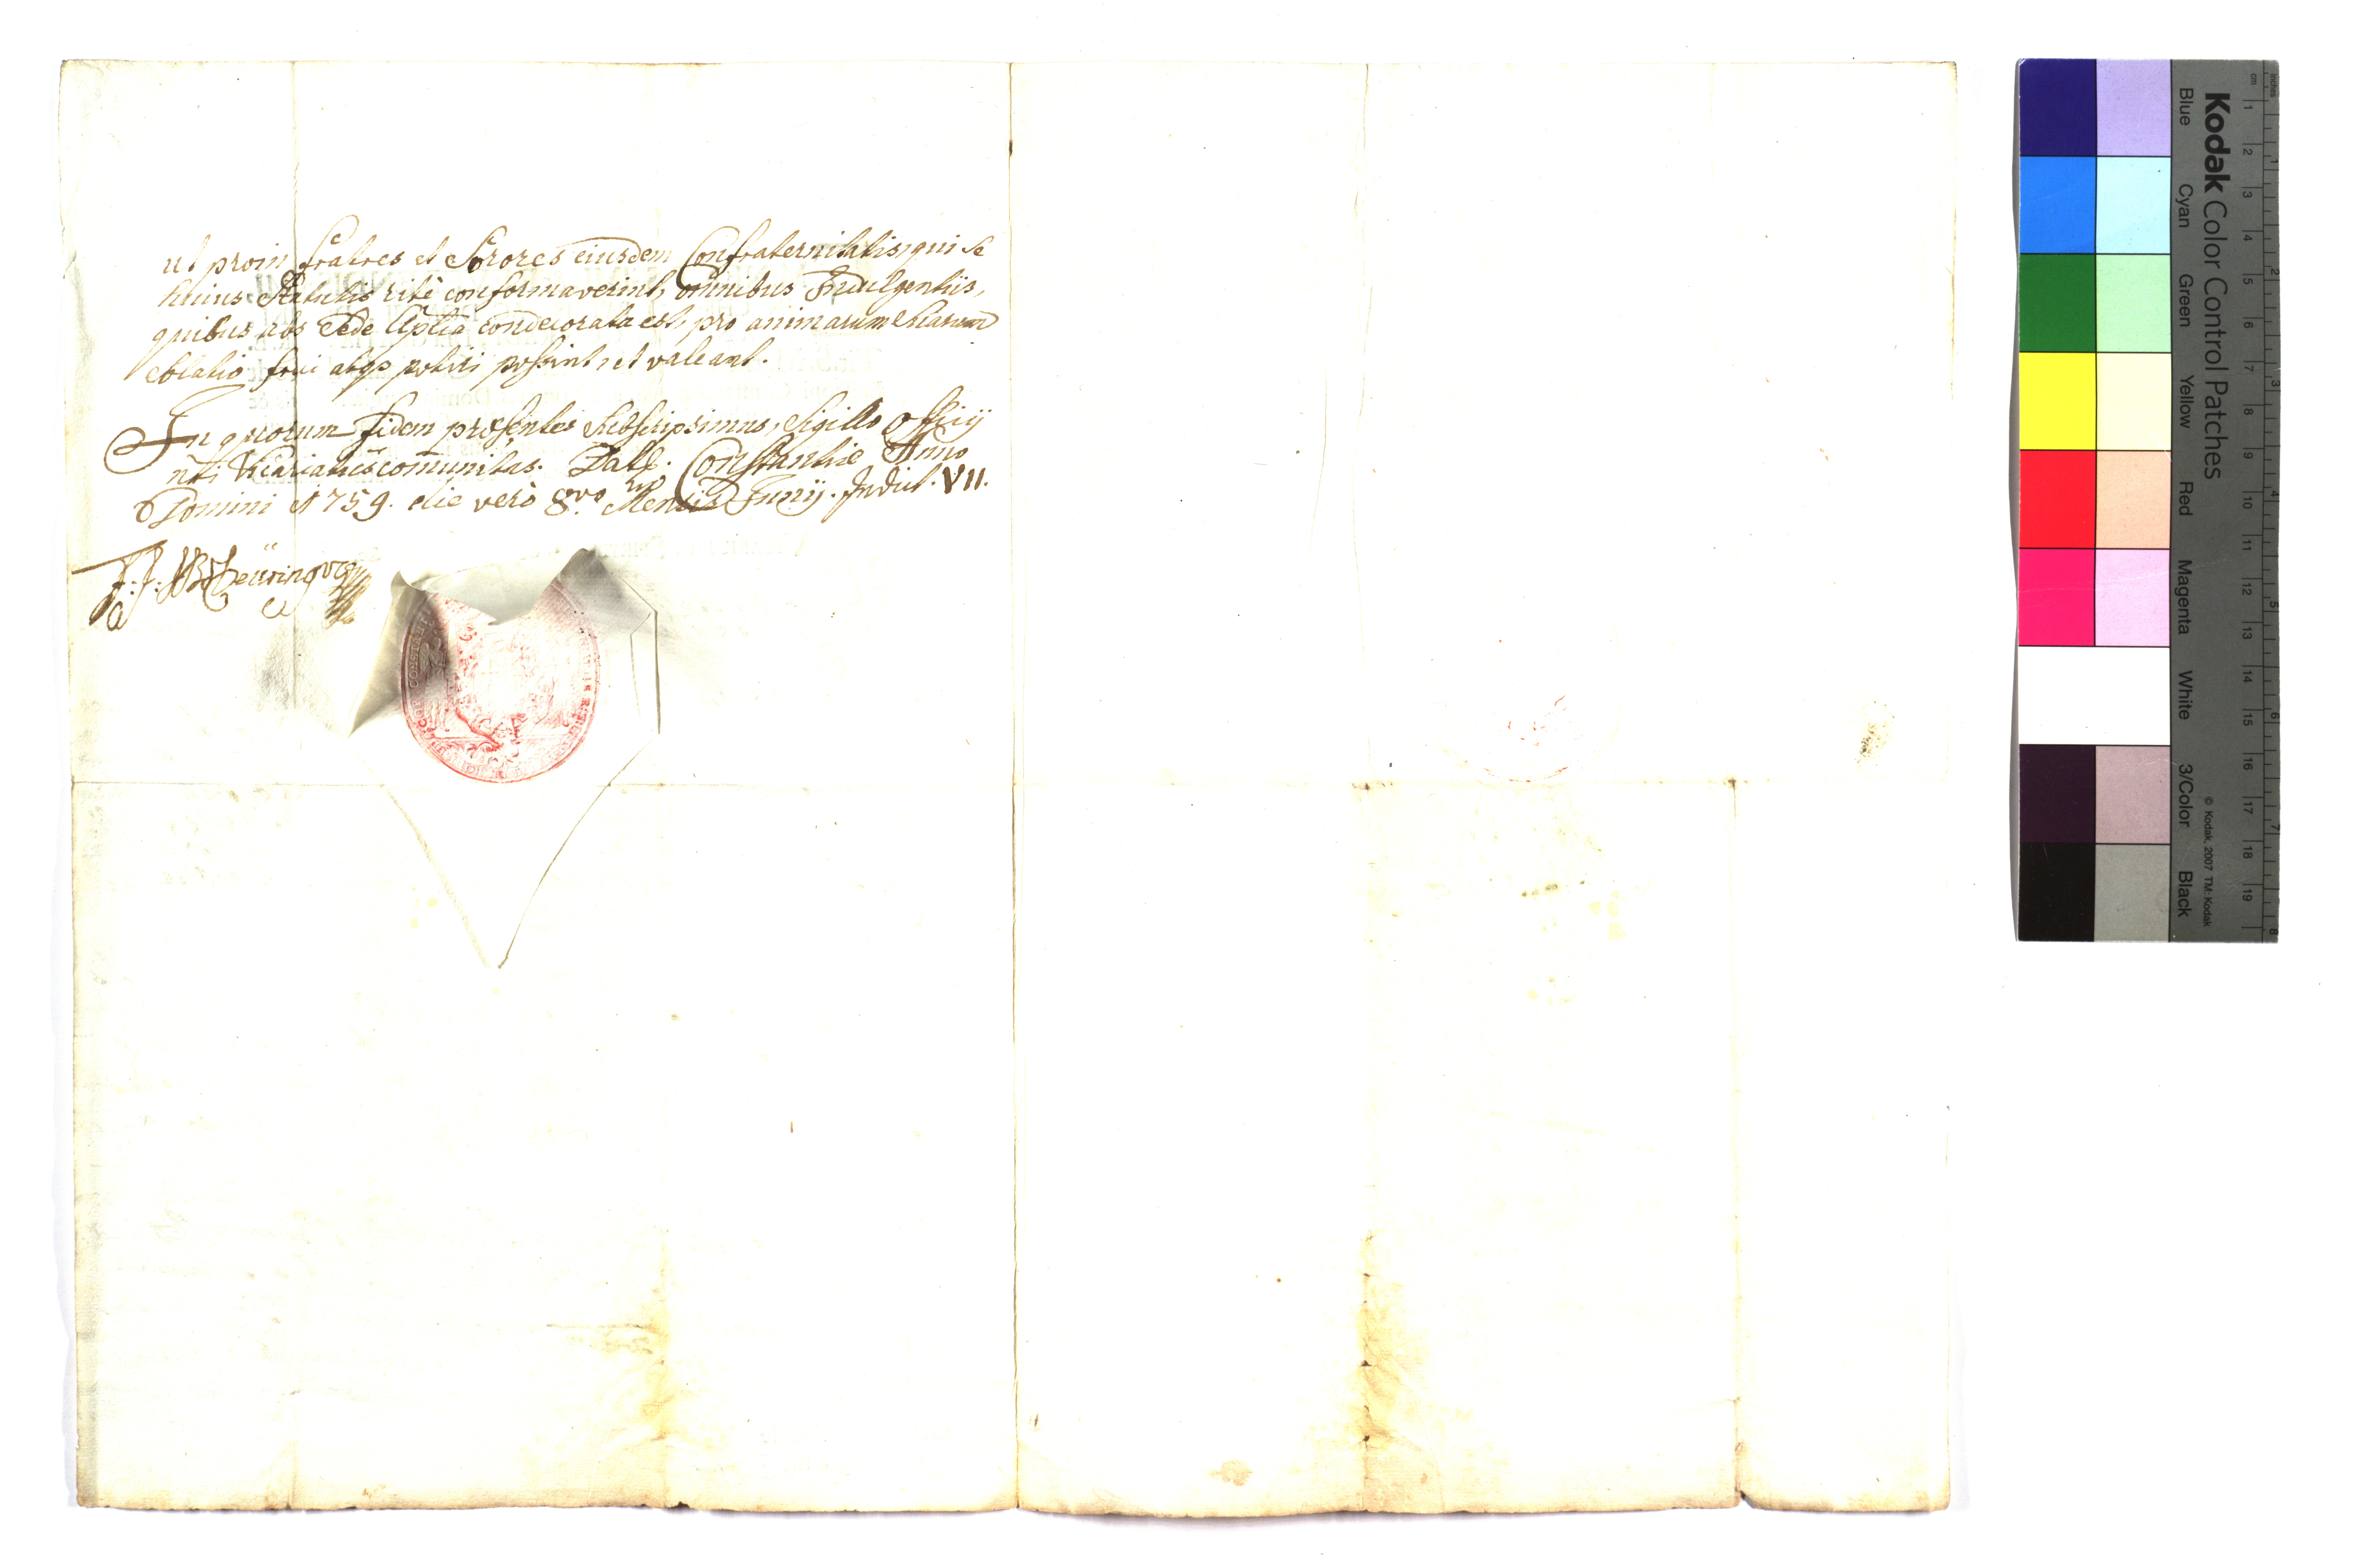 ut proin fratres et Sorores eiusdem Confraternitatis, qui se
huius Statutis ritè conformaverint, omnibus Indulgentiis,
quibus abs Sede Aptca condecorata est, pro animarum suarum
solatio frui atqe potiri possint, et valeant.
In quorum fidem præsentes subscripsimus, Sigillo Officij
nri Vicariatus comunitas. Datt. Constantiæ Anno
Domini 1759. die verò 8vo Mensis Junij. Indict. VII.
Kodak Color Control Patches
Blue Cyan Green Yellow Red Magenta White 3/Color Black
© Kodak, 2007 TM: Kodak
cm 1 2 3 4 5 6 7 8 9 10 11 12 13 14 15 16 17 18 19
inches 1 2 3 4 5 6 7 8